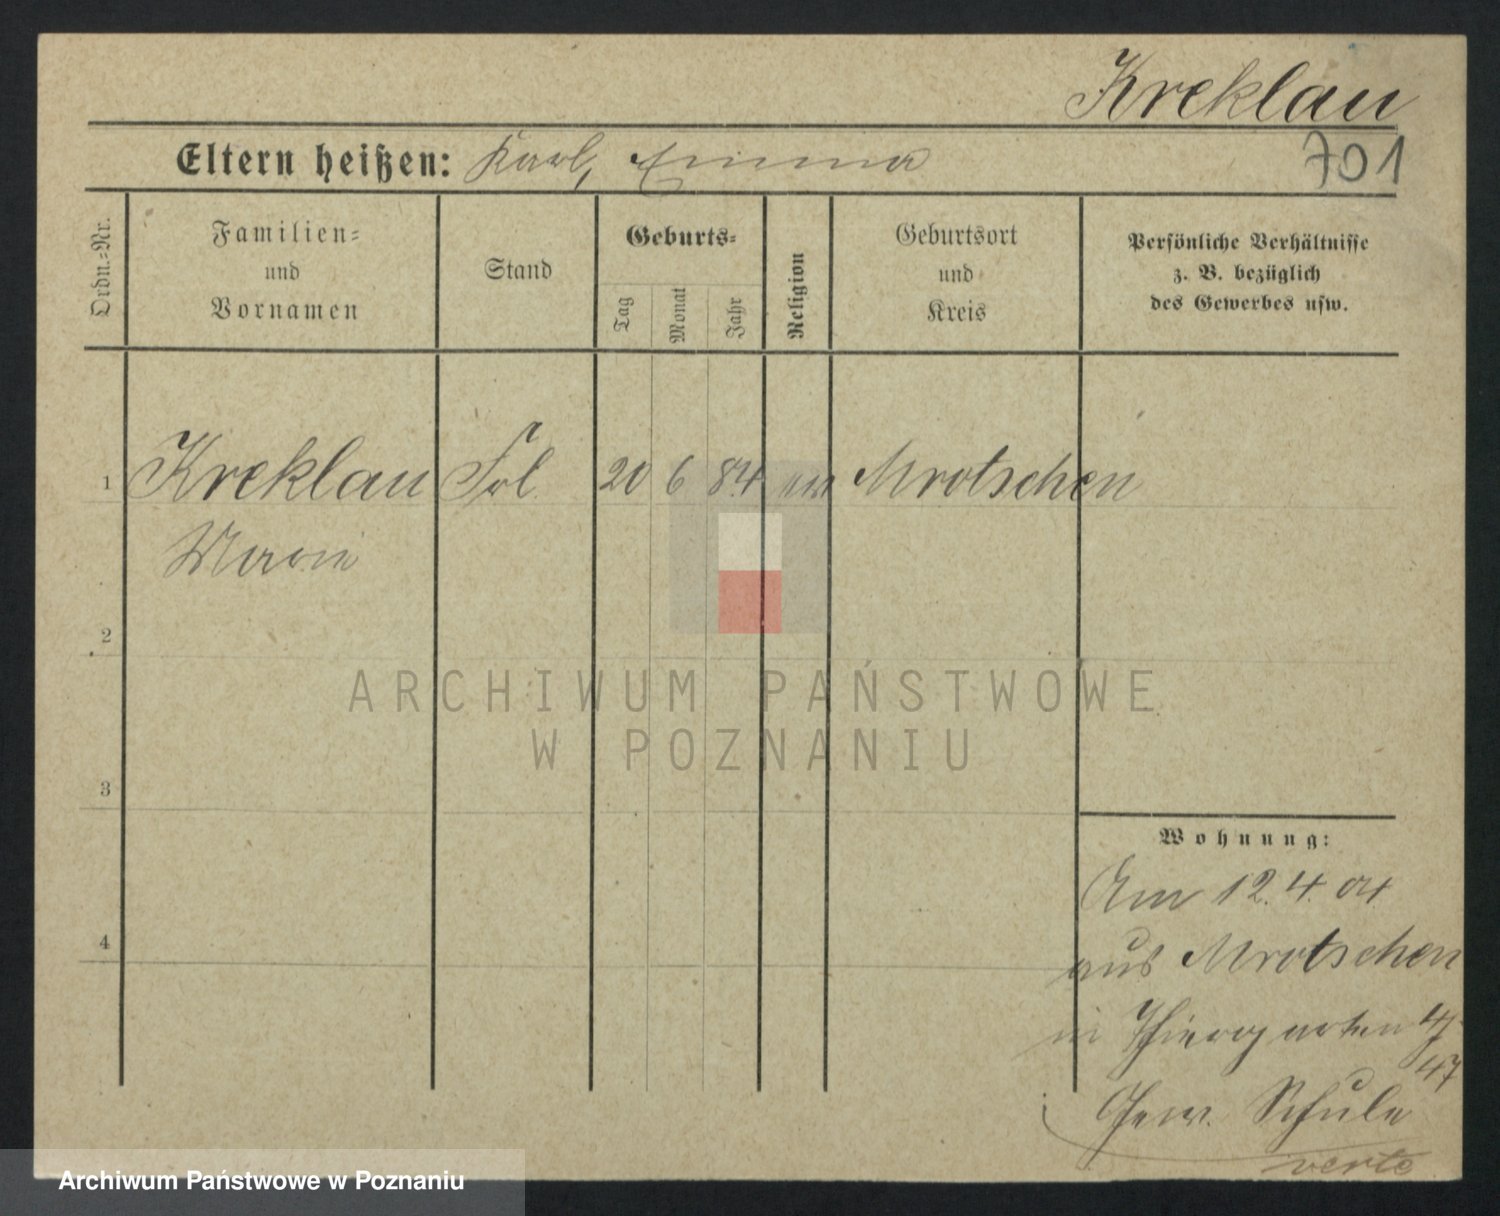 Kreklau
Eltern heißen: Karl, Emma
701
Ordn.-Nr.
Familien-
und
Vornamen
Stand
Geburts-
Tag
Monat
Jahr
Religion
Geburtsort
und
Kreis
Persönliche Verhältnisse
z. B. bezüglich
des Gewerbes usw.
1 Kreklau Frl. 20 6 84 Mrotschen
Marie
2
3
4
Wohnung:
Am 12.4.04
aus Mrotschen
in Thiergarten
47
Gew. Schule
verte
ARCHIWUM PAŃSTWOWE
W POZNANIU
Archiwum Państwowe w Poznaniu